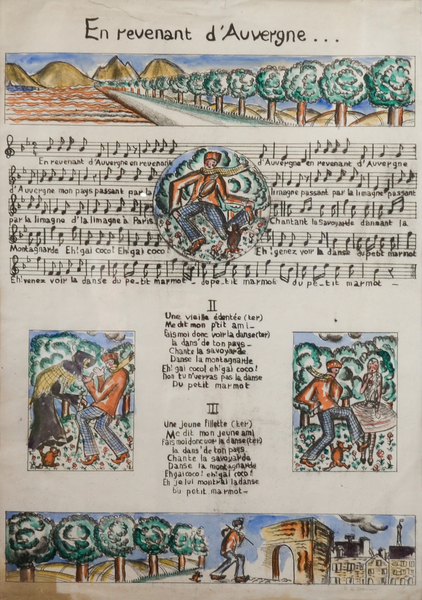 En revenant d'Auvergne...
En revenant d'Auvergne en revenant d'Auvergne en revenant d'Auvergne
d'Auvergne mon pays passant par la limagne passant par la limagne passant
par la limagne d'la limagne à Paris Chantant la savoyarde dansant la
Montagnarde Eh! gai coco! Eh! gai coco! Eh! venez voir la danse du petit marmot
Eh! venez voir la danse du petit marmot - du petit marmot - du petit marmot -
II
Une vieille édentée (ter)
Me dit mon p'tit ami -
Fais moi donc voir la danse (ter)
la dans' de ton pays -
Chante la savoyarde
Danse la montagnarde
Eh! gai coco! eh! gai coco!
Non tu n'verras pas la danse
Du petit marmot
III
Une jeune fillette (ter)
Me dit mon jeune ami
Fais moi donc voir la danse (ter)
la dans' de ton pays
Chante la savoyarde
Danse la montagnarde
Eh gai coco! eh! gai coco!
Eh je lui montrai la danse
Du petit marmot -